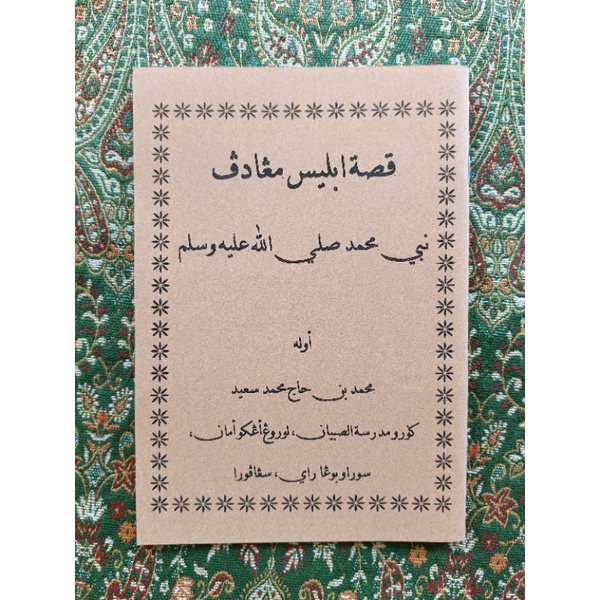 قصة ابليس مڠادڤ
نبي محمد صلي الله عليه وسلم
أوله
محمد بن حاج محمد سعيد
كورو مدرسة الصبيان، لوروڠ أڠكو أمان،
سوراو بوڠا راي، سڤاڤورا